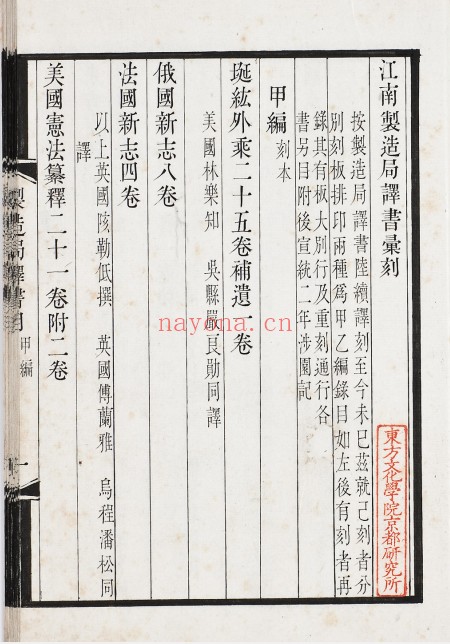 江南製造局譯書彙刻
按製造局譯書陸續譯刻至今未已茲就已刻者分
別刻板排印兩種爲甲乙編錄目如左後有刻者再
錄其有板大別行及重刻通行各
書另目附後宣統二年涉園記
甲編刻本
埏紘外乘二十五卷補遺一卷
美國林樂知 吳縣嚴良勛同譯
俄國新志八卷
法國新志四卷
以上英國陔勒低撰 英國傅蘭雅 烏程潘松同
譯
美國憲法纂釋二十一卷附二卷
製造局譯書目 甲編 一
東方文化學院京都研究所
nayona.cn